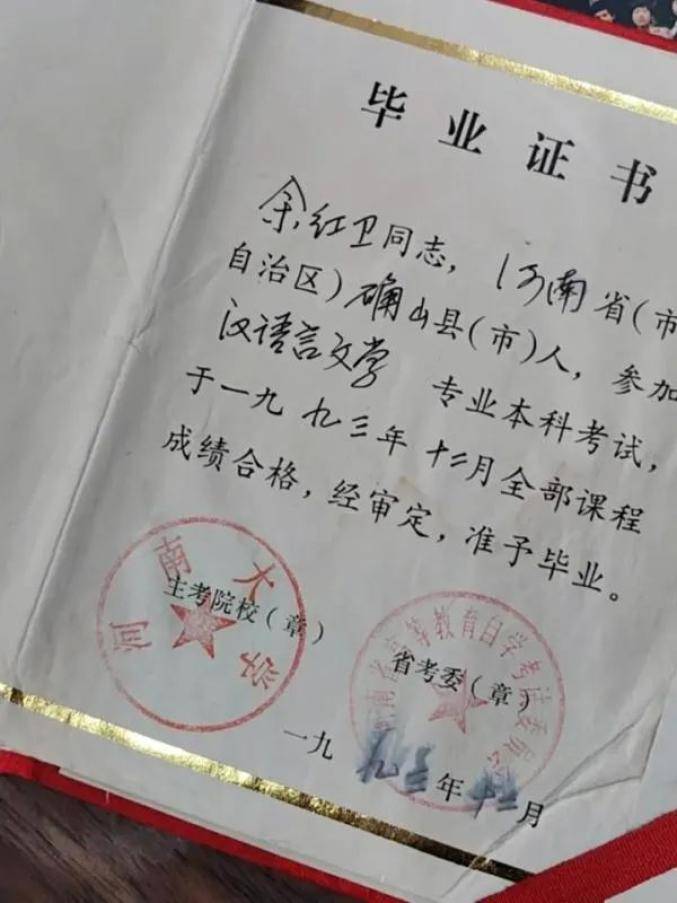 毕业证书
余红卫同志,河南省(市
自治区)确山县(市)人,参加
汉语言文学 专业本科考试,
于一九九三年十二月全部课程
成绩合格,经审定,准予毕业。
河南大学
主考院校(章)
河南省高等教育自学考试委员会
省考委(章)
一九九三年十二月